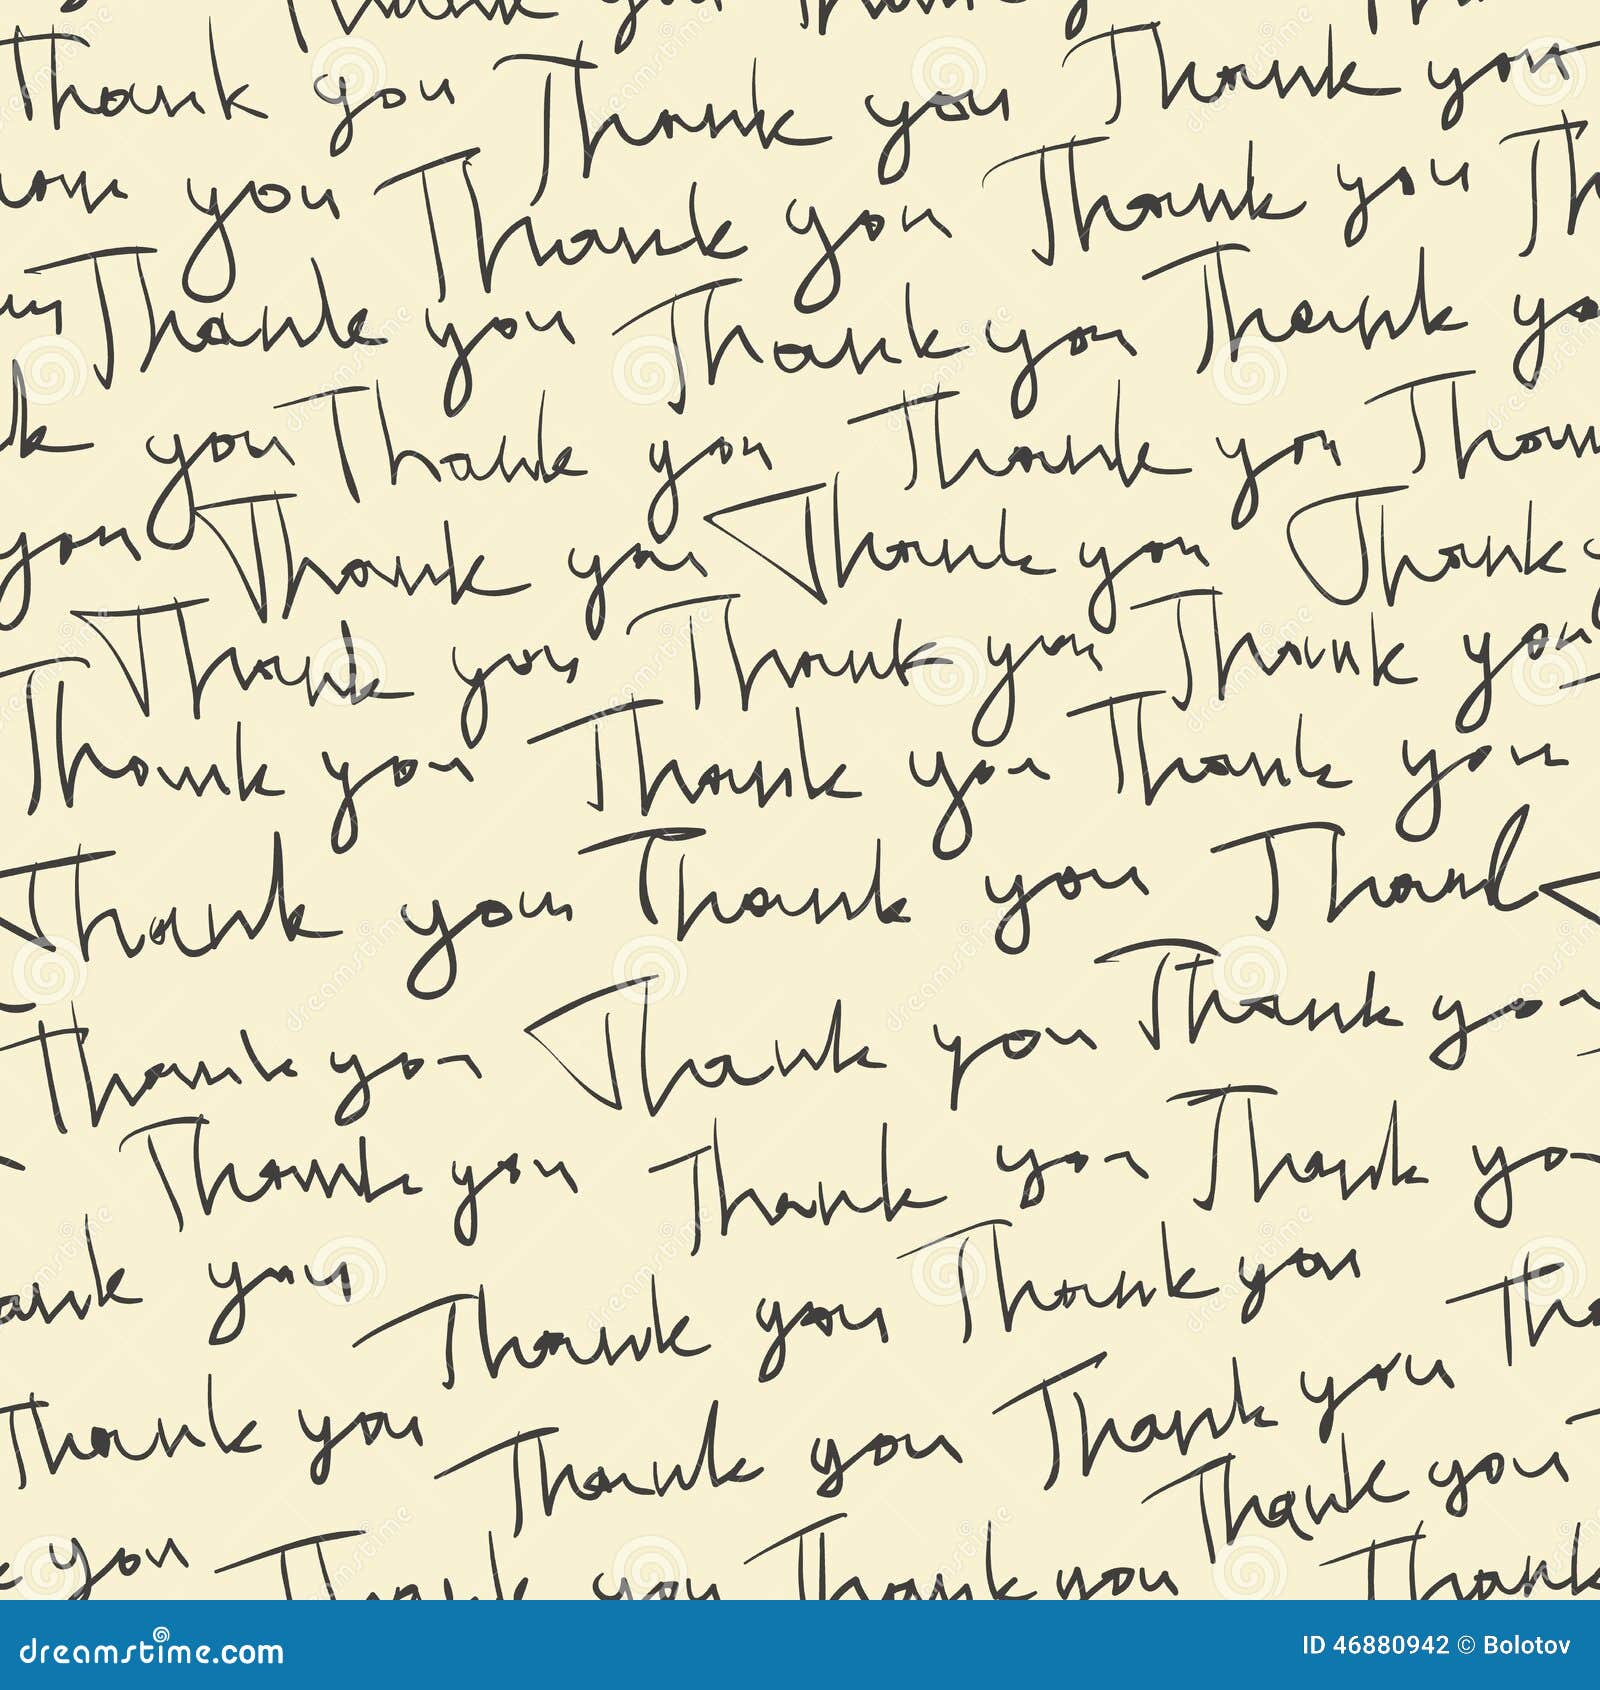 Thank you Thank you Thank you
you Thank you Thank you
Thank you Thank you Thank
you Thank you Thank you
you Thank you Thank you Thank
Thank you Thank you Thank you
Thank you Thank you Thank you
Thank you Thank you Thank
Thank you Thank you Thank you
Thank you Thank you Thank
you Thank you Thank you
Thank you Thank you Thank you
Thank you
you Thank you Thank you Thank
dreamstime.com ID 46880942 © Bolotov